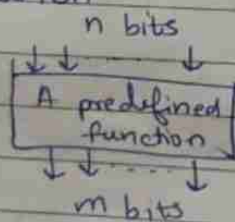 n bits
A predefined
function
m bits